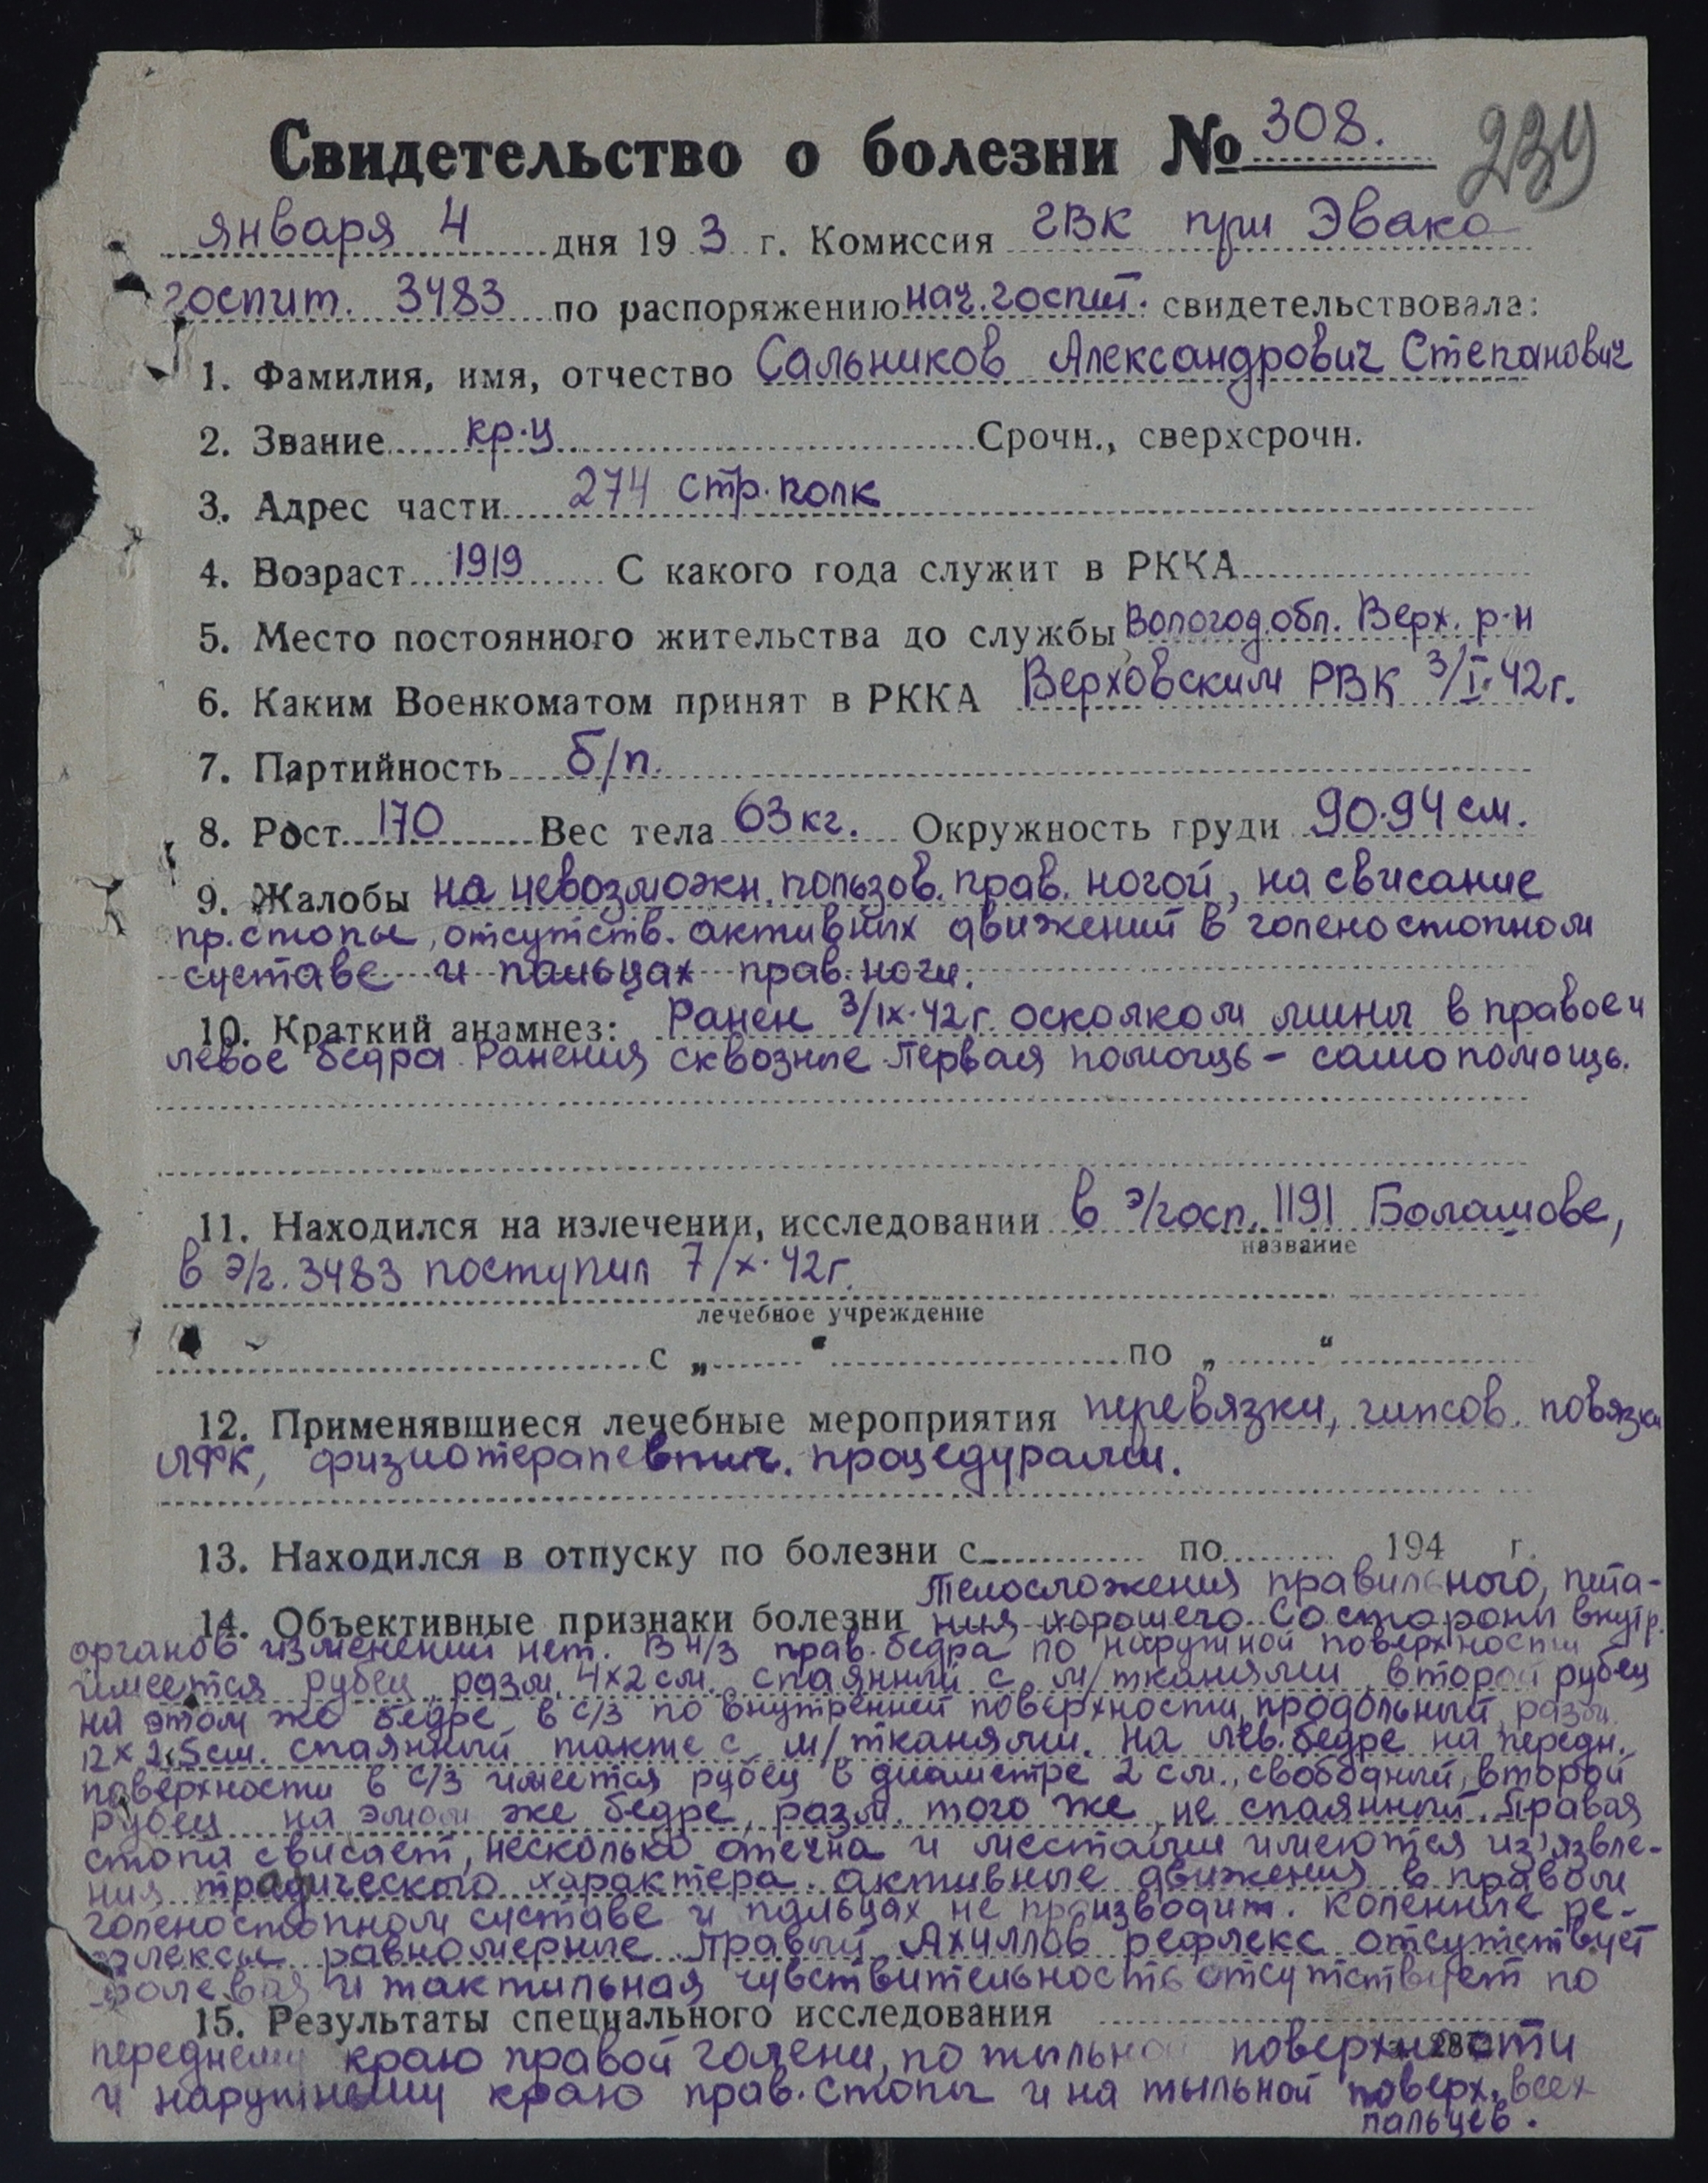 Свидетельство о болезни № 308.
239
января 4 дня 19 3 г. Комиссия ГВК при Эвако
госпит. 3483 по распоряжению нач. госпит. свидетельствовала:
1. Фамилия, имя, отчество Сальников Александрович Степанович
2. Звание кр-ц Срочн., сверхсрочн.
3. Адрес части 274 стр. полк
4. Возраст 1919 С какого года служит в РККА
5. Место постоянного жительства до службы Вологод. обл. Верх. р-н
6. Каким Военкоматом принят в РККА Верховским РВК 3/I-42г.
7. Партийность б/п.
8. Рост 170 Вес тела 63 кг. Окружность груди 90-94 см.
9. Жалобы на невозможн. пользов. прав. ногой, на свисание
пр. стопы, отсутств. активных движений в голеностопном
суставе и пальцах прав. ноги.
10. Краткий анамнез: Ранен 3/IX-42г. осколком мины в правое и
левое бедра. Ранения сквозные Первая помощь - самопомощь.
11. Находился на излечении, исследовании в э/госп. 1191 Болашове,
название
в э/г. 3483 поступил 7/X-42г.
лечебное учреждение
с „ “ по „ “
12. Применявшиеся лечебные мероприятия перевязки, гипсов. повязки
ЛФК, физиотерапевтич. процедурами.
13. Находился в отпуску по болезни с по 194 г.
Телосложения правильного, пита-
14. Объективные признаки болезни ния хорошего. Со стороны внутр.
органов изменений нет. В н/3 прав. бедра по наружной поверхности
имеется рубец разм. 4x2 см. спаянный с м/тканями, второй рубец
на этом же бедре в с/3 по внутренней поверхности, продольный, разм.
12x2,5 см. спаянный также с м/тканями. На лев. бедре на передн.
поверхности в с/3 имеется рубец в диаметре 2 см., свободный, второй
рубец на этом же бедре, разм. того же, не спаянный. Правая
стопа свисает, несколько отечна и местами имеются из'язвле-
ния характера. активные движения в правом
голеностопном суставе и пальцах не производит. Коленные ре-
флексы равномерные. Правый Ахиллов рефлекс отсутствует
болевая и тактильная чувствительность отсутствует по
15. Результаты специального исследования
переднему краю правой голени, по тыльной поверхности
и наружному краю прав. стопы и на тыльной поверх. всех
пальцев.